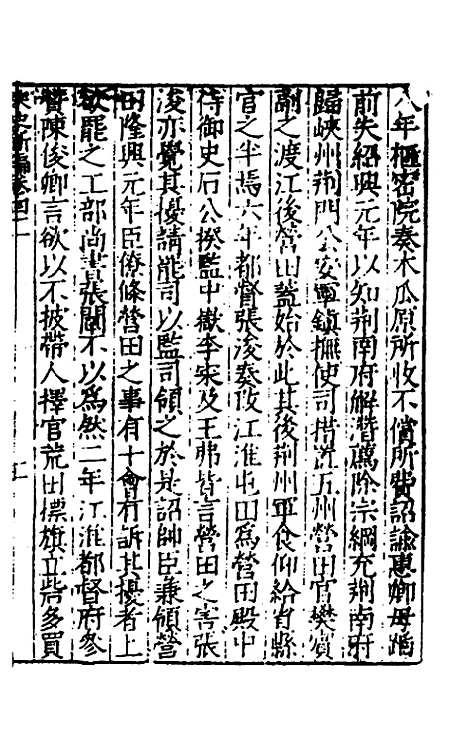 八年樞密院奏木瓜原所收不償所費詔諭惠卿毋蹈
前失紹興元年以知荆南府解潛薦除宗綱充荆南府
歸峽州荆門公安軍鎮撫使司措置五州營田官樊賓
副之渡江後營田蓋始於此其後荆州軍食仰給省縣
官之半焉六年都督張浚奏改江淮屯田爲營田殿中
侍御史石公揆監中嶽李寀及王弗皆言營田之害張
浚亦覺其擾請罷司以監司領之於是詔帥臣兼領營
田隆興元年臣僚條營田之事有十會有訴其擾者上
欲罷之工部尚書張闡不以爲然二年江淮都督府參
贊陳俊卿言欲以不披帶人擇官荒田標旗立砦多買
宋史新編卷四十二